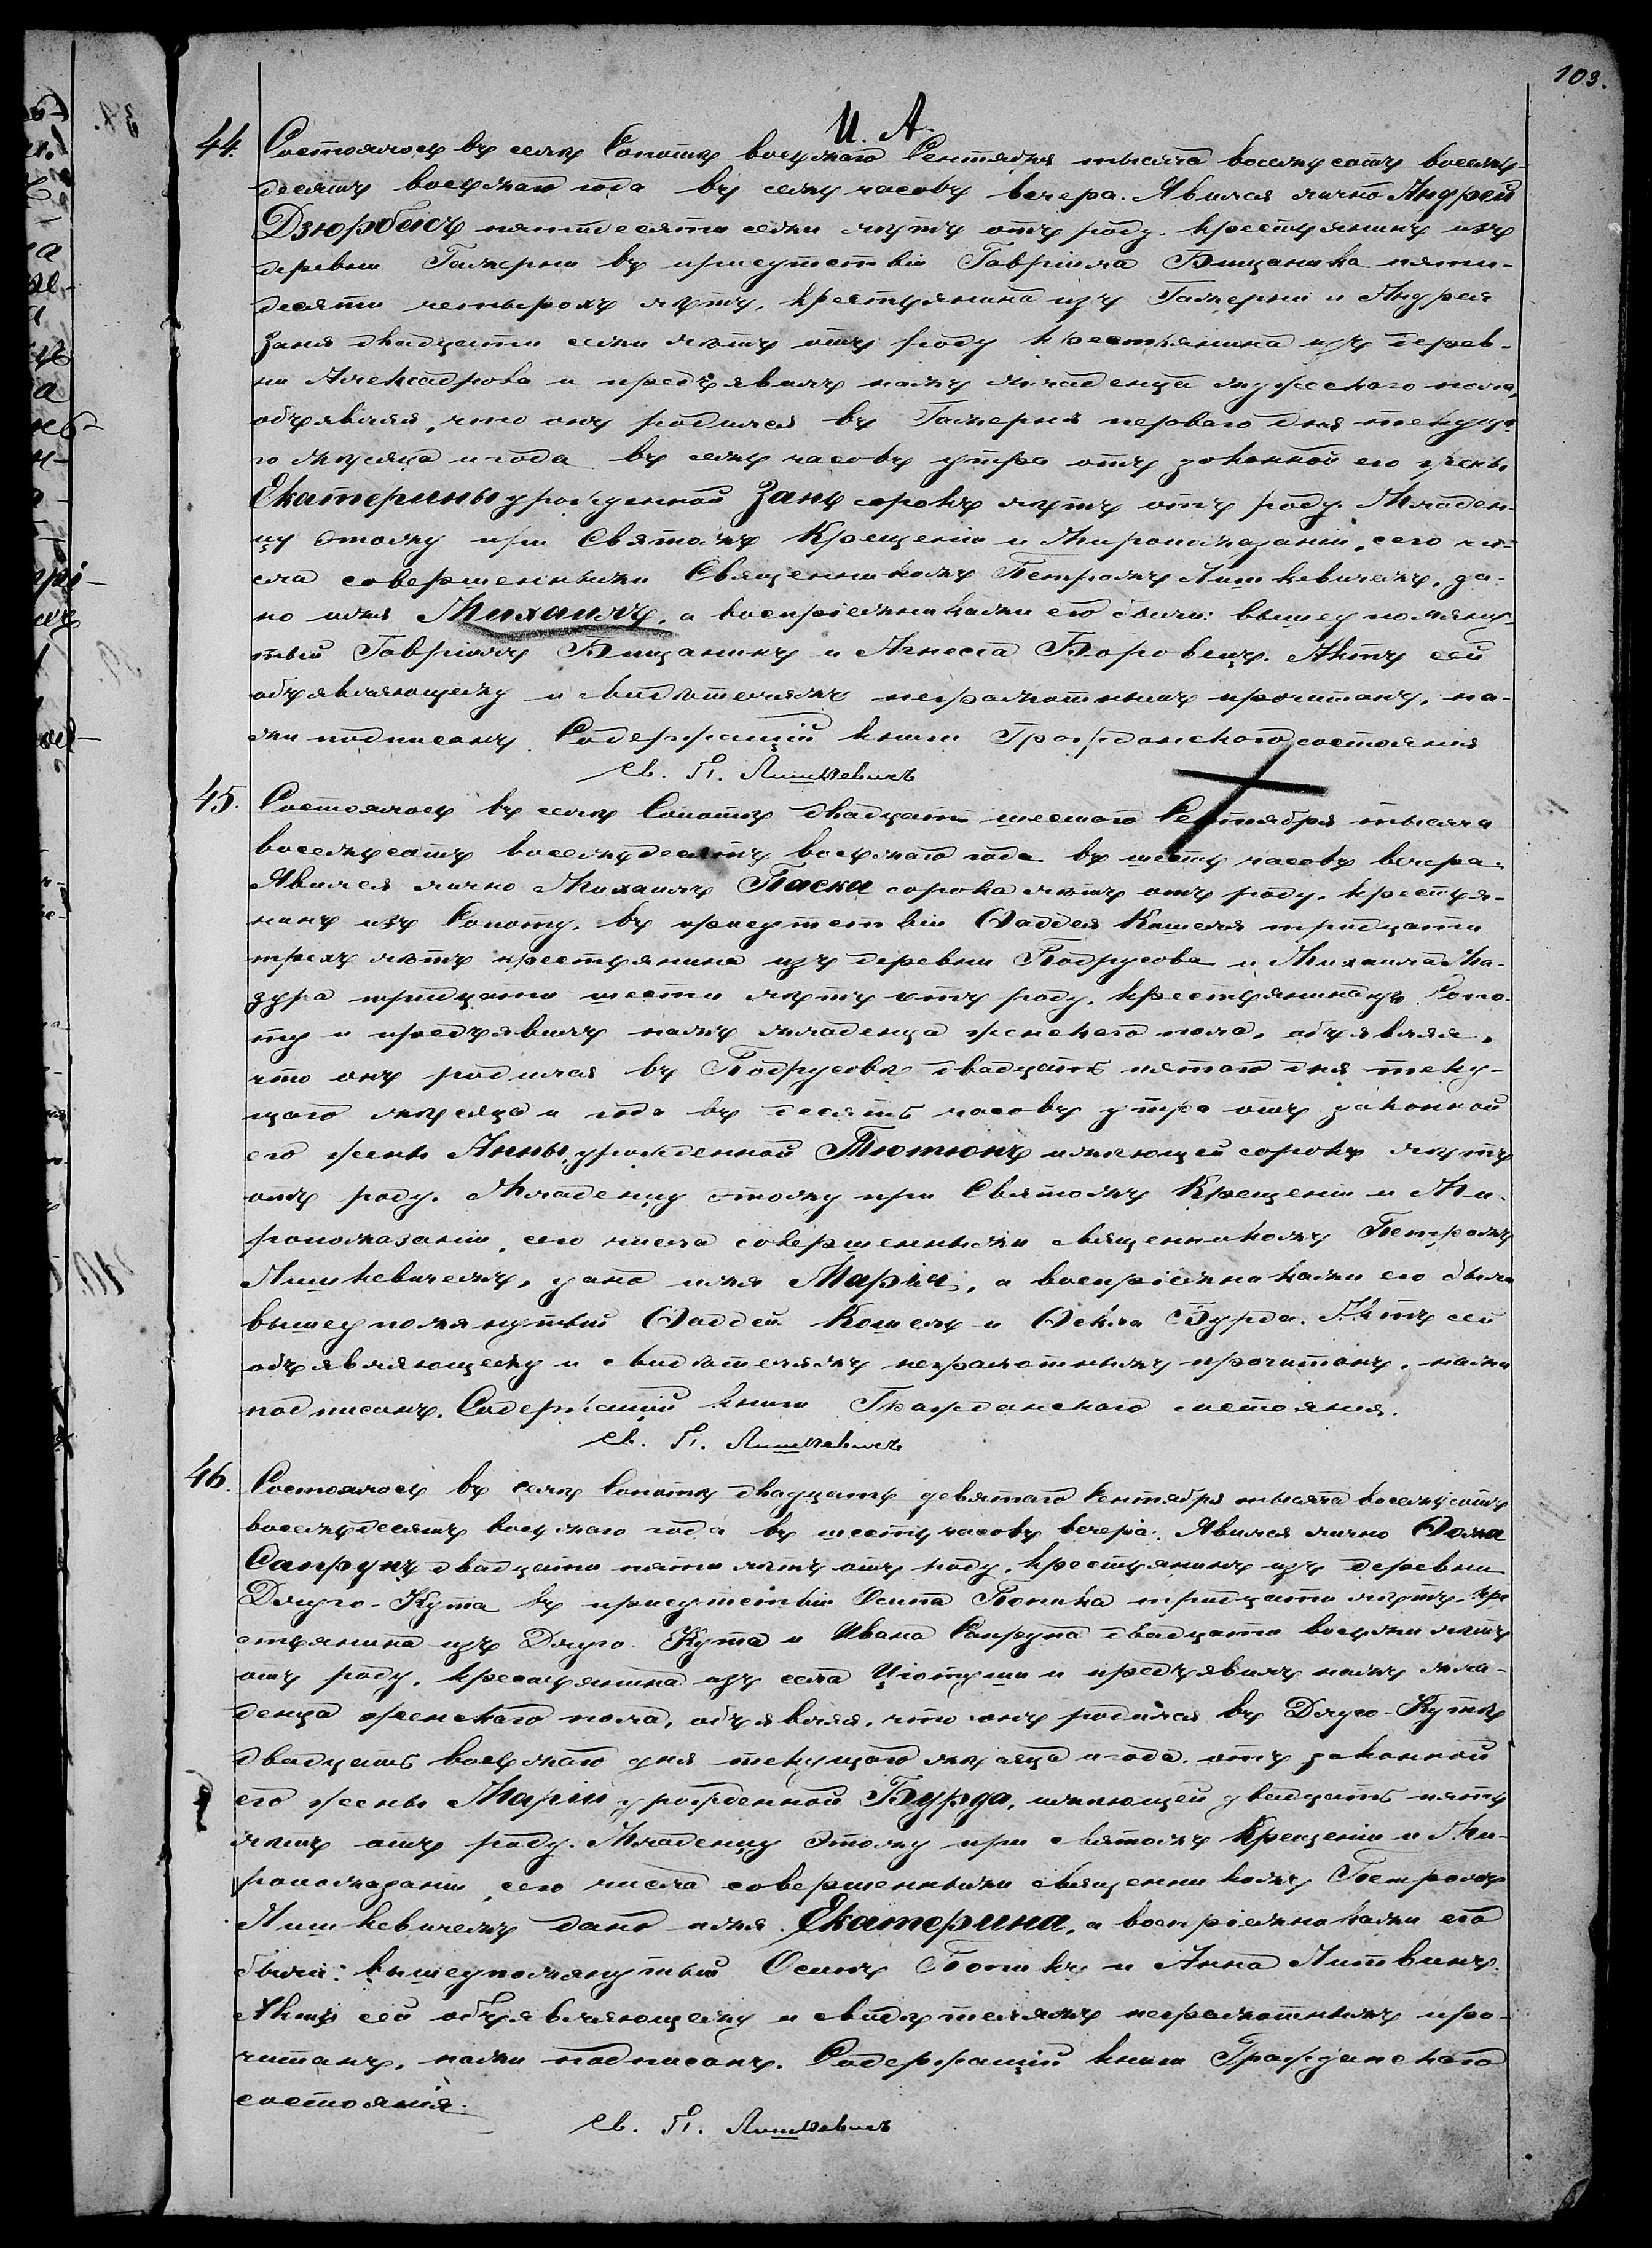 103.
И. А.
44. Состоялось въ селѣ Сопотѣ восьмаго Сентября тысяча восемьсотъ восемь-
десятъ восьмаго года въ семь часовъ вечера. Явился лично Андрей
Дзюрбасъ пятидесяти семи лѣтъ отъ роду, крестьянинъ изъ
деревни Гамерни въ присутствіи Гавріила Бищаника пяти-
десяти четырехъ лѣтъ, крестьянина изъ Гамерни и Андрея
Заня двадцати семи лѣтъ отъ роду крестьянина изъ дерев-
ни Александрова и предъявилъ намъ младенца мужескаго пола,
объявляя, что онъ родился въ Гамерня перваго дня текуща-
го мѣсяца и года въ семь часовъ утра отъ законной его жены
Екатерины урожденной Зань сорокъ лѣтъ отъ роду. Младен-
цу этому при Святомъ Крещеніи и Миропомазаніи, сего чи-
сла совершенными Священникомъ Петромъ Лишкевичемъ, да-
но имя Михаилъ, а воспріемниками его были: вышеупомяну-
тый Гавріилъ Бищаникъ и Агнесса Боровецъ. Актъ сей
объявляющему и свидѣтелямъ неграмотнымъ прочитанъ, на-
ми подписанъ. Содержащій книги Гражданскаго состоянія
Св. П. Лишкевичъ
45. Состоялось въ селѣ Сопотѣ двадцать шестаго Сентября тысяча
восемьсотъ восемьдесятъ восьмаго года въ шесть часовъ вечера.
Явился лично Михаилъ Паска сорока лѣтъ отъ роду, крестья-
нинъ изъ Сопоту, въ присутствіи Ѳаддея Кошеля тридцати
трехъ лѣтъ крестьянина изъ деревни Подрусова и Михаила Ма-
зура тридцати шести лѣтъ отъ роду, крестьянина изъ Сопо-
ту и предъявилъ намъ младенца женскаго пола, объявляя,
что онъ родился въ Подрусовѣ двадцать пятаго дня теку-
щаго мѣсяца и года въ десять часовъ утра отъ законной
его жены Анны, урожденной Тютюнъ имѣющей сорокъ лѣтъ
отъ роду. Младенцу этому при Святомъ Крещеніи и Ми-
ропомазаніи, сего числа совершенными священникомъ Петромъ
Лишкевичемъ, дано имя Марія, а воспріемниками его были
вышеупомянутый Ѳаддей Кошель и Ѳекла Бурда. Актъ сей
объявляющему и свидѣтелямъ неграмотнымъ прочитанъ, нами
подписанъ. Содержащій книги Гражданскаго состоянія.
Св. П. Лишкевичъ
46. Состоялось въ селѣ Сопотѣ двадцать девятаго Сентября тысяча восемьсотъ
восемьдесятъ восьмаго года въ шесть часовъ вечера. Явился лично Ѳома
Сапрунъ двадцати пяти лѣтъ отъ роду, крестьянинъ изъ деревни
Длуго-Кута въ присутствіи Осипа Попика тридцати лѣтъ, кре
стьянина изъ Длуго-Кута и Ивана Сапруна двадцати восьми лѣтъ
отъ роду, крестьянина изъ села Ціотуши и предъявилъ намъ мла-
денца женскаго пола, объявляя, что онъ родился въ Длуго-Кутѣ
двадцать восьмаго дня текущаго мѣсяца и года. отъ законной
его жены Маріи урожденной Бурда, имѣющей двадцать пять
лѣтъ отъ роду. Младенцу этому при святомъ Крещеніи и Ми-
ропомазаніи, сего числа совершенными священникомъ Петромъ
Лишкевичемъ дано имя Екатерина, а воспріемниками его
были: вышеупомянутый Осипъ Попикъ и Анна Литвинъ.
Актъ сей объявляющему и свидѣтелямъ неграмотнымъ про-
читанъ, нами подписанъ. Содержащій книги Гражданскаго
состоянія.
Св. П. Лишкевичъ